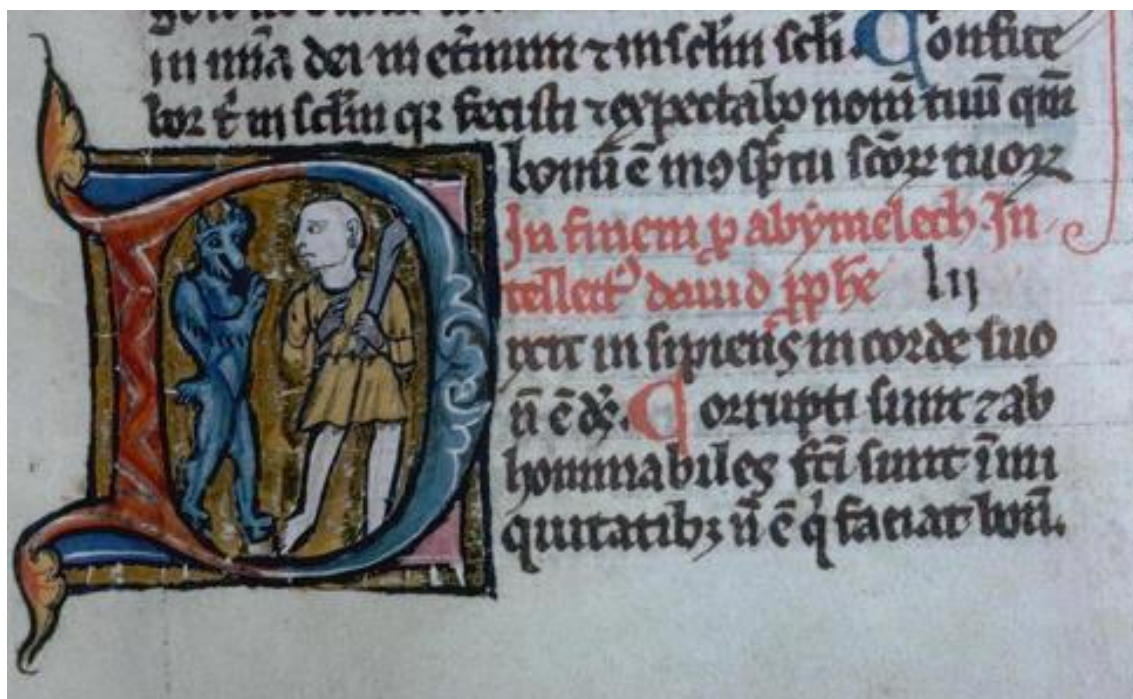 in mīa dei in et̄num ⁊ in sclm̄ scli̅. Confite
bor t̄ in sclm̄ qr fecisti ⁊ expectabo nom̄ tuū qm̄
bonū ē in ꝯsp̄tu sc̄oꝝ tuoꝝ
In finem ꝓ abymelech. In
tellectꝰ dauid ꝓph̄e lij
Dixit in sipiens in corde suo
n̄ ē ds̄. Corrupti sunt ⁊ ab
hominabiles fc̄i sunt ī ini
quitatibꝫ n̄ ē qⁱ faciat bon̄.